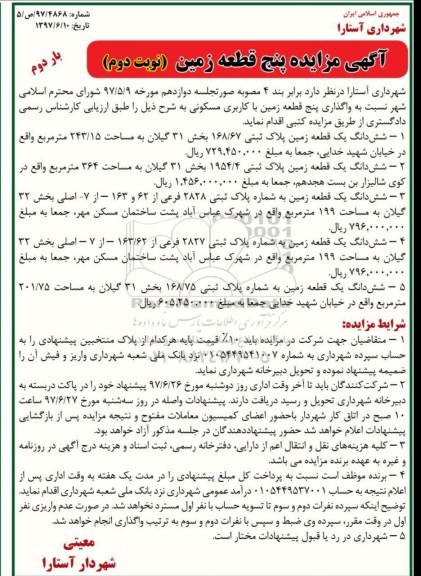 جمهوری اسلامی ایران
شهرداری آستارا
شماره: ۹۷/۴۸۶۸/ص/۵
تاریخ: ۱۳۹۷/۶/۱۰
بار دوم
آگهی مزایده پنج قطعه زمین (نوبت دوم)
شهرداری آستارا درنظر دارد برابر بند ۴ مصوبه صورتجلسه دوازدهم مورخه ۹۷/۵/۹ شورای محترم اسلامی
شهر نسبت به واگذاری پنج قطعه زمین با کاربری مسکونی به شرح ذیل را طبق ارزیابی کارشناس رسمی
دادگستری از طریق مزایده کتبی اقدام نماید.
۱ – شش‌دانگ یک قطعه زمین پلاک ثبتی ۱۶۸/۶۷ بخش ۳۱ گیلان به مساحت ۲۴۳/۱۵ مترمربع واقع
در خیابان شهید خدایی، جمعا به مبلغ ۷۲۹,۴۵۰,۰۰۰ ریال.
۲ – شش‌دانگ یک قطعه زمین پلاک ثبتی ۱۹۵۴/۴ بخش ۳۱ گیلان به مساحت ۳۶۴ مترمربع واقع در
کوی شالیزار بن بست هجدهم، جمعا به مبلغ ۱,۴۵۶,۰۰۰,۰۰۰ ریال.
۳ – شش‌دانگ یک قطعه زمین به شماره پلاک ثبتی ۲۸۲۸ فرعی از ۶۲ و ۱۶۳ – از ۷- اصلی بخش ۳۲
گیلان به مساحت ۱۹۹ مترمربع واقع در شهرک عباس آباد پشت ساختمان مسکن مهر، جمعا به مبلغ
۷۹۶,۰۰۰,۰۰۰ ریال.
۴ – شش‌دانگ یک قطعه زمین به شماره پلاک ثبتی ۲۸۲۷ فرعی از ۱۶۳/۶۲ – از ۷ – اصلی بخش ۳۲
گیلان به مساحت ۱۹۹ مترمربع واقع در شهرک عباس آباد پشت ساختمان مسکن مهر، جمعا به مبلغ
۷۹۶,۰۰۰,۰۰۰ ریال.
۵ – شش‌دانگ یک قطعه زمین به شماره پلاک ثبتی ۱۶۸/۷۵ بخش ۳۱ گیلان به مساحت ۲۰۱/۷۵
مترمربع واقع در خیابان شهید خدایی جمعا به مبلغ ۶۰۵,۲۵۰,۰۰۰ ریال.
شرایط مزایده:
۱ – متقاضیان جهت شرکت در مزایده باید ۱۰٪ قیمت پایه هرکدام از پلاک منتخبین پیشنهادی را به
حساب سپرده شهرداری به شماره ۰۱۰۵۴۴۹۵۴۱۰۰۷ نزد بانک ملی شعبه شهرداری واریز و فیش آن را
ضمیمه پیشنهاد نموده و تحویل دبیرخانه شهرداری نماید.
۲ – شرکت‌کنندگان باید تا آخر وقت اداری روز دوشنبه مورخ ۹۷/۶/۲۶ پیشنهاد خود را در پاکت دربسته به
دبیرخانه شهرداری تحویل و رسید دریافت دارند. پیشنهادات واصله در روز سه‌شنبه مورخ ۹۷/۶/۲۷ ساعت
۱۰ صبح در اتاق کار شهردار باحضور اعضای کمیسیون معاملات مفتوح و نتیجه مزایده پس از بازگشایی
پیشنهادات اعلام خواهد شد حضور پیشنهاددهندگان در جلسه مذکور آزاد خواهد بود.
۳ – کلیه هزینه‌های نقل و انتقال اعم از دارایی، دفترخانه رسمی، ثبت اسناد و هزینه درج آگهی در روزنامه
و غیره به عهده برنده مزایده می باشد.
۴ – برنده موظف است نسبت به پرداخت کل مبلغ پیشنهادی را در مدت یک هفته به وقت اداری پس از
اعلام نتیجه به حساب ۰۱۰۵۴۴۹۵۳۷۰۰۱ درآمد عمومی شهرداری نزد بانک ملی شعبه شهرداری اقدام نماید.
توضیح اینکه سپرده نفرات دوم و سوم تا تسویه حساب با نفر اول مسترد نخواهد شد. در صورت عدم واریزی نفر
اول در وقت مقرر، سپرده وی ضبط و سپس با نفرات دوم و سوم به ترتیب واگذاری انجام خواهد شد.
۵ – شهرداری در رد یا قبول پیشنهادات مختار است.
معیتی
شهردار آستارا